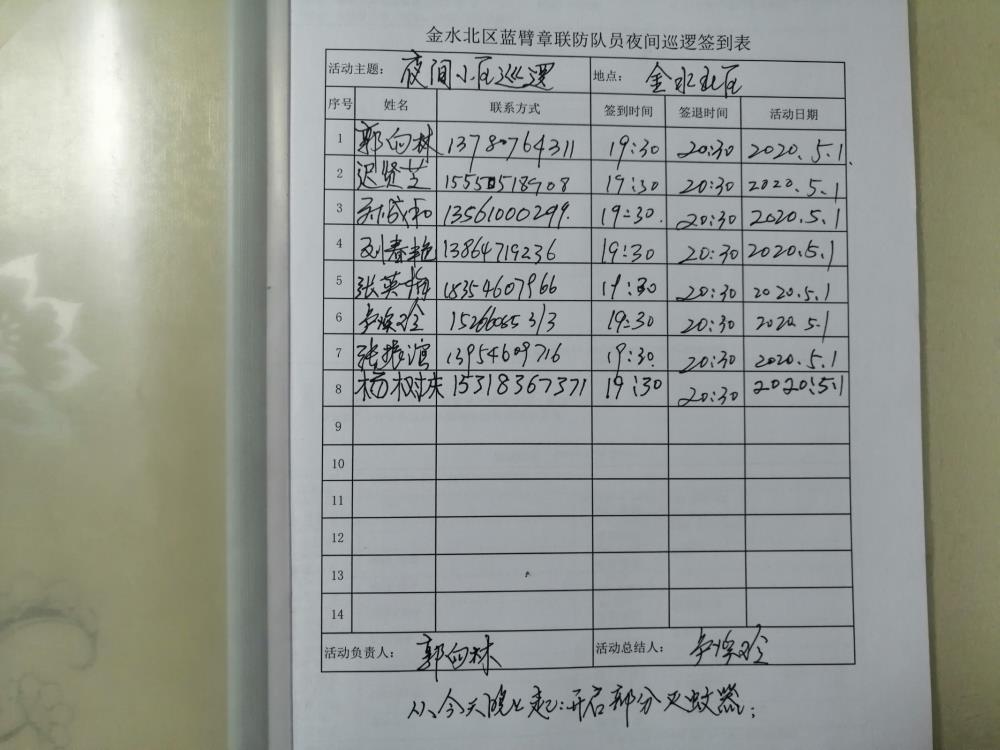 金水北区蓝臂章联防队员夜间巡逻签到表
活动主题: 夜间小区巡逻 地点: 金水北区
序号 姓名 联系方式 签到时间 签退时间 活动日期
1 郭向林 13780764311 19:30 20:30 2020.5.1
2 迟贤芝 15550518908 19:30 20:30 2020.5.1
3 13561000299. 19:30. 20:30 2020.5.1
4 刘春艳 13864719236 19:30 20:30 2020.5.1
5 张英梅 18354607966 19:30 20:30 2020.5.1
6 19:30 20:30 2020.5.1
7 张振滨 13954609716 19:30 20:30 2020.5.1
8 杨树林 15318367371 19:30 20:30 2020.5.1
9
10
11
12
13
14
活动负责人: 郭向林 活动总结人:
从今天晚上起:开启部分灭蚊器;